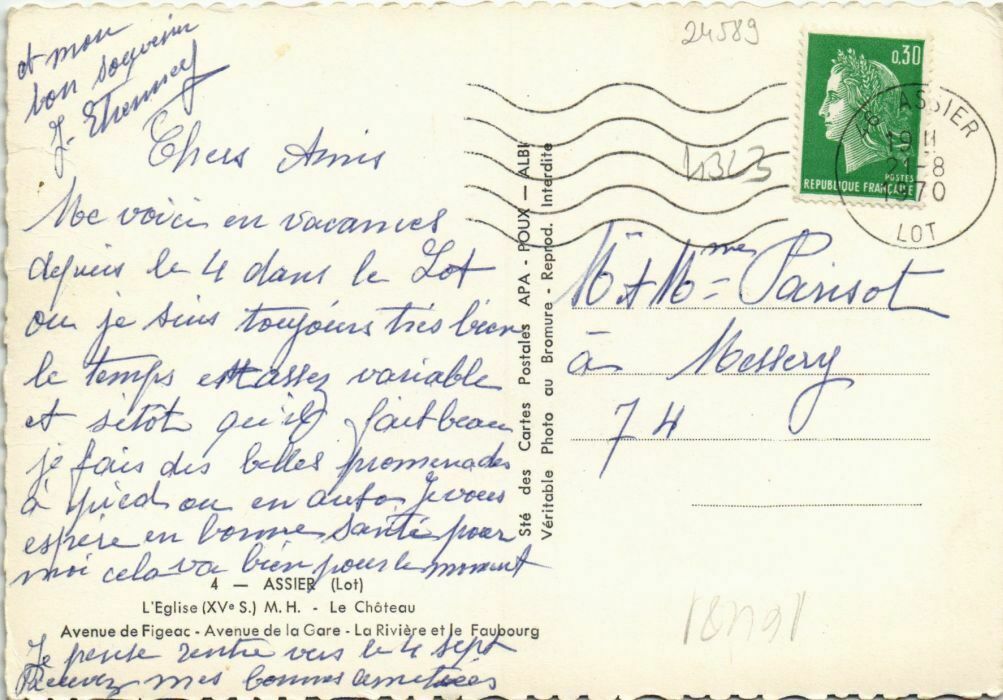 24589
et mon
bon souvenir
J. Etienney
Chers Amis
Me voici en vacances
depuis le 4 dans le Lot
ou je suis toujours très bien
le temps est assez variable
et sitôt qu'il fait beau
je fais des belles promenades
à pied ou en auto. Je vous
espère en bonne santé pour
moi cela va bien pour le moment
4 — ASSIER (Lot)
L'Eglise (XVe S.) M. H. - Le Château
Avenue de Figeac - Avenue de la Gare - La Rivière et le Faubourg
Je pense rentre vers le 4 sept
Recevez mes bonnes amitiées
Sté des Cartes Postales APA - POUX — ALBI
Véritable Photo au Bromure - Reprod. Interdite
0,30
POSTES
REPUBLIQUE FRANÇAISE
46 ASSIER
19 H
21-8
1970
LOT
M et Mme Parisot
à Messery
74